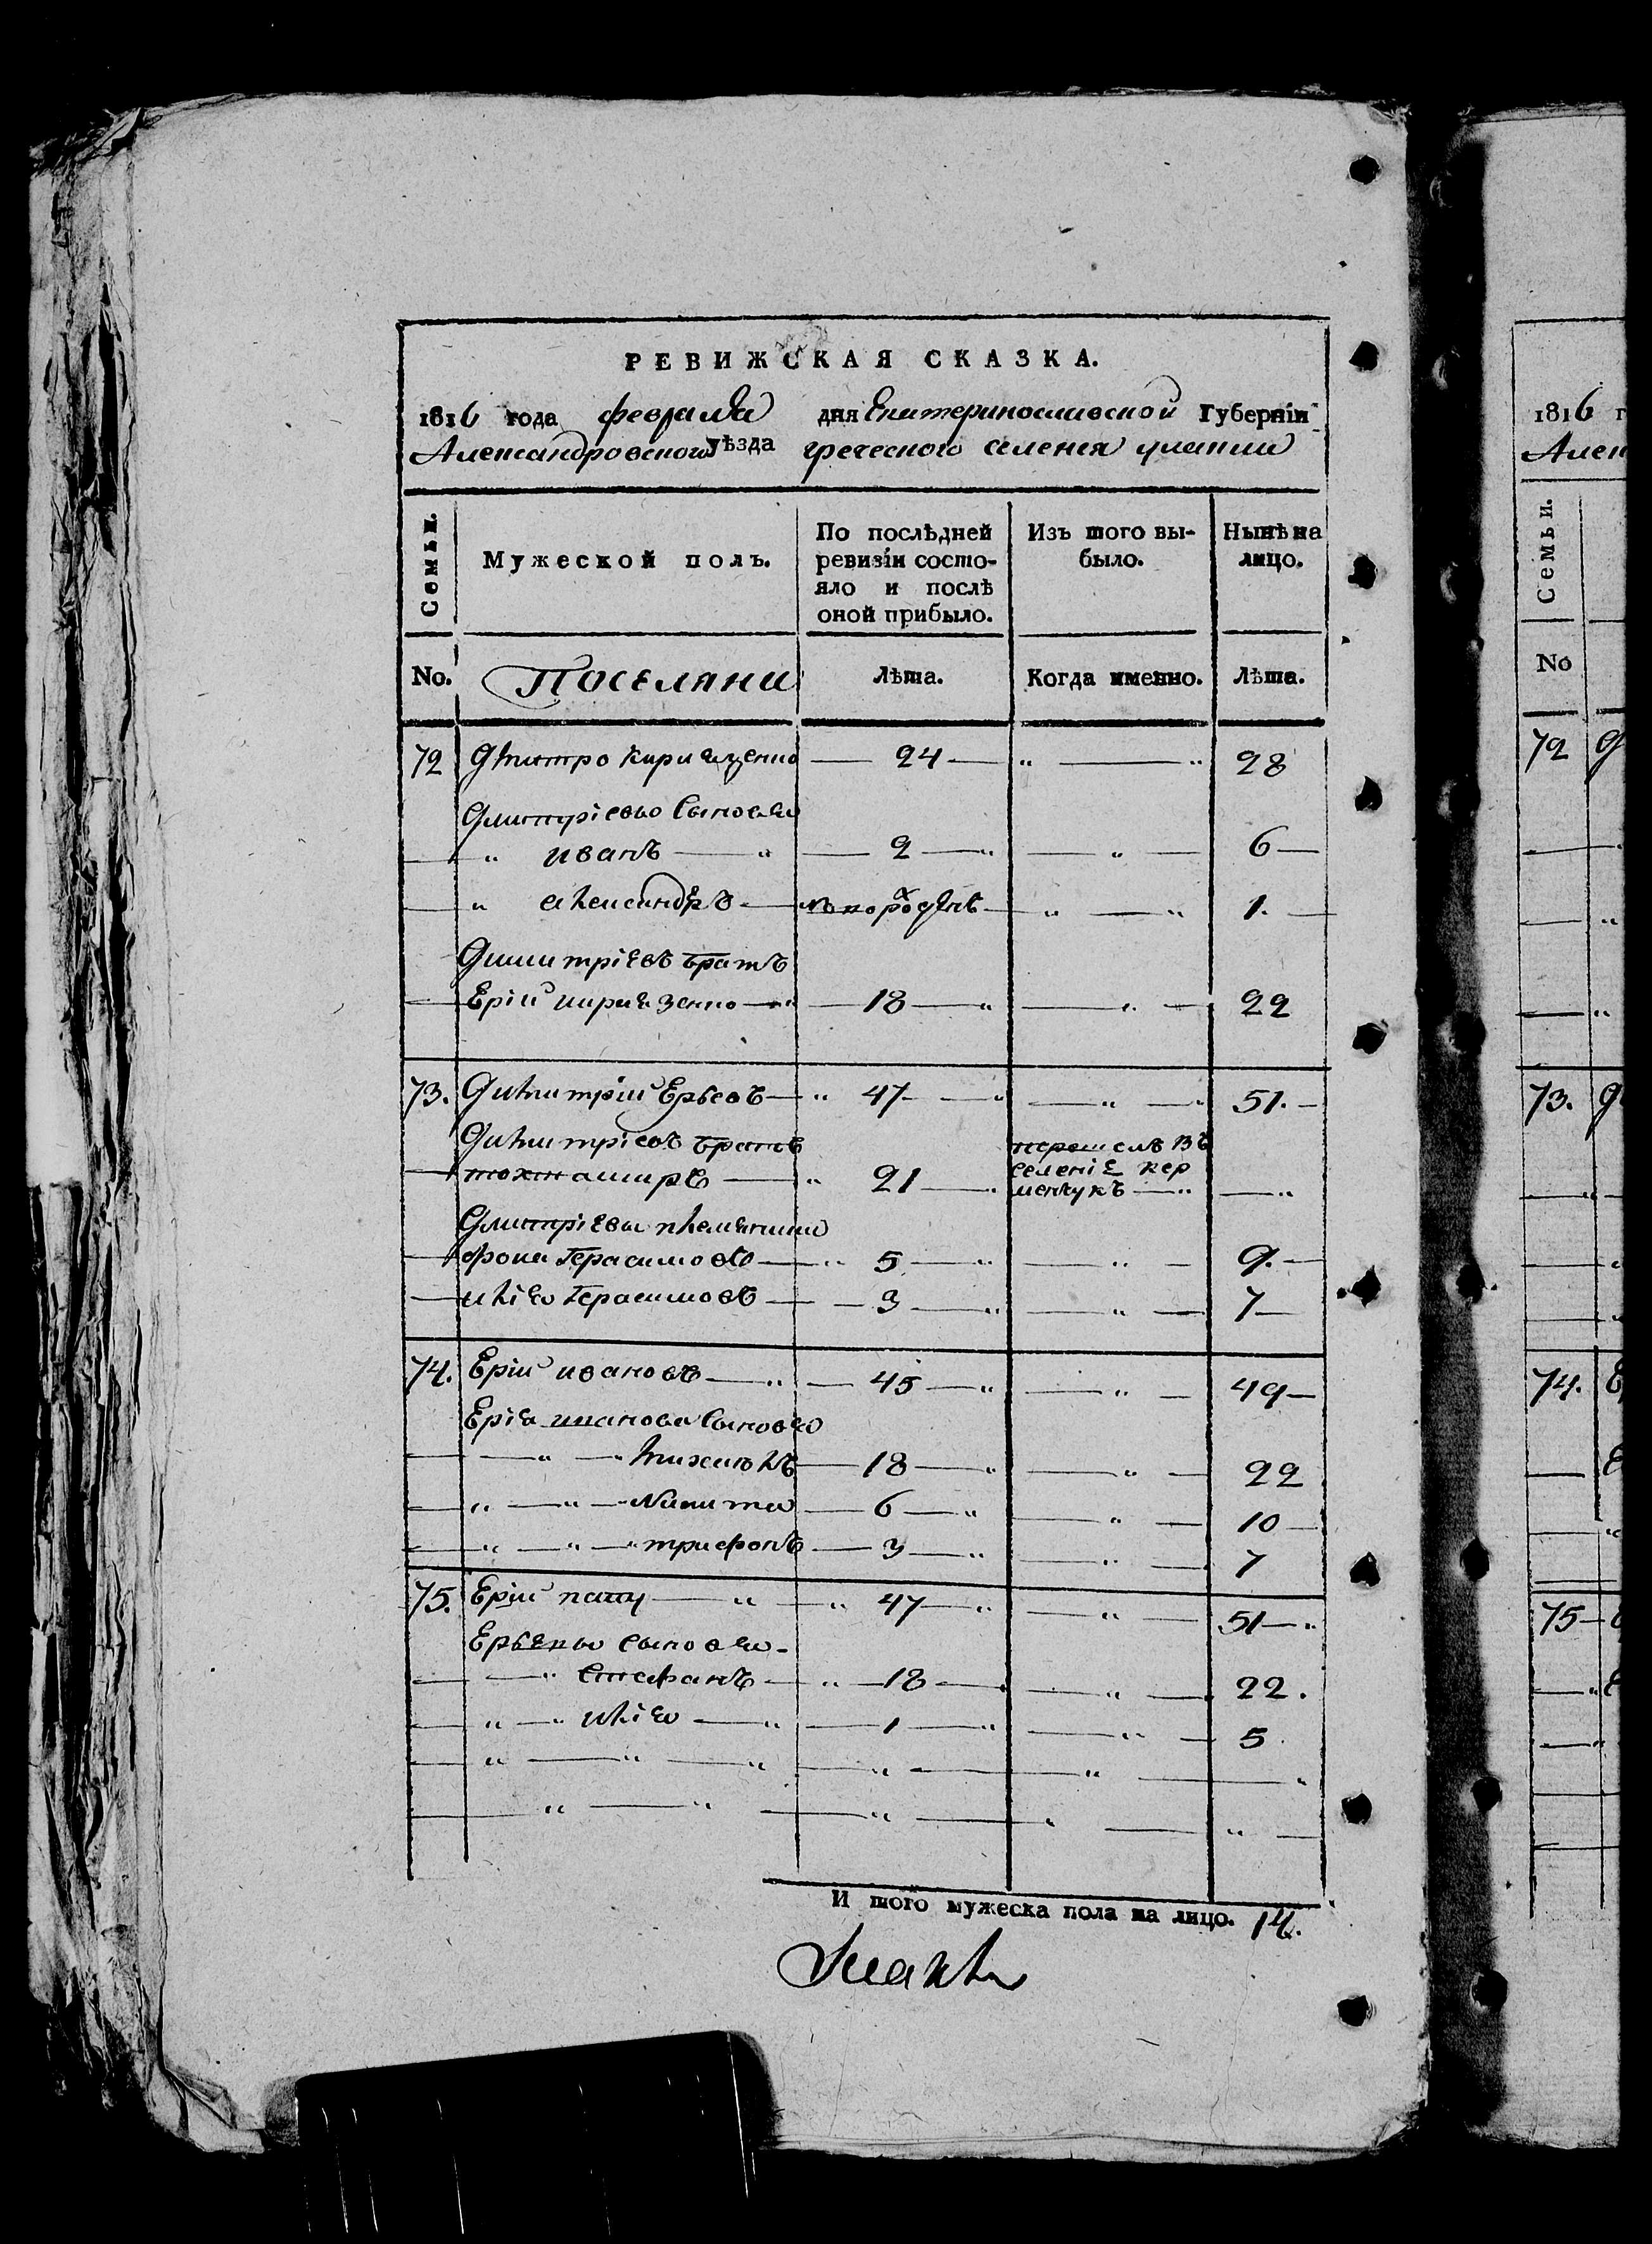 РЕВИЖСКАЯ СКАЗКА.
1816 года февраля дня Екатеринославской Губерніи
Александровского уѣзда греческого селения
Семьи.
Мужеской полъ.
По послѣдней ревизіи состояло и послѣ оной прибыло.
Изъ того выбыло.
Нынѣ на лицо.
No. Поселяни Лѣта. Когда именно. Лѣта.
72 Дмитро Кириязенко — 24 — „ — „ 28
Дмитріево Сыновя
„ иванъ — „ — 2 — „ — „ — 6 —
„ александръ — „ — „ 1. —
Димитріевъ братъ
Ерій кириязенко — „ — 18 — „ — „ — 22
73. Димитрій Ерьевъ — „ 47 — „ — „ — „ 51. —
Димитріевъ братъ перешелъ въ
тохтамиръ — „ 21 — „ селеніе кер
менчукъ — „ — „
Дмитріевы племяники
фома Герасимовъ — „ 5 — „ — „ — 9. —
илія Герасимовъ — — 3 — „ — „ — 7 —
74. Ерій ивановъ — „ — 45 — „ — „ — 49 —
Ерія иванова Сыновя
— „ — „ — 18 — „ — „ — 22
„ — „ — Никита — 6 — „ — „ — 10 —
„ — „ — „ трифонъ — 3 — „ — „ — 7
75. Ерій — „ — „ 47 — „ — „ — 51 — „
Сыновя —
— „ Стефанъ — „ — 18 — — „ — 22.
„ — „ илія — „ — 1 — „ — „ — 5.
И того мужеска пола на лицо. 14.
1816 г
Алек
Семьи.
No
72 Д
73. Д
74. Е
75 —